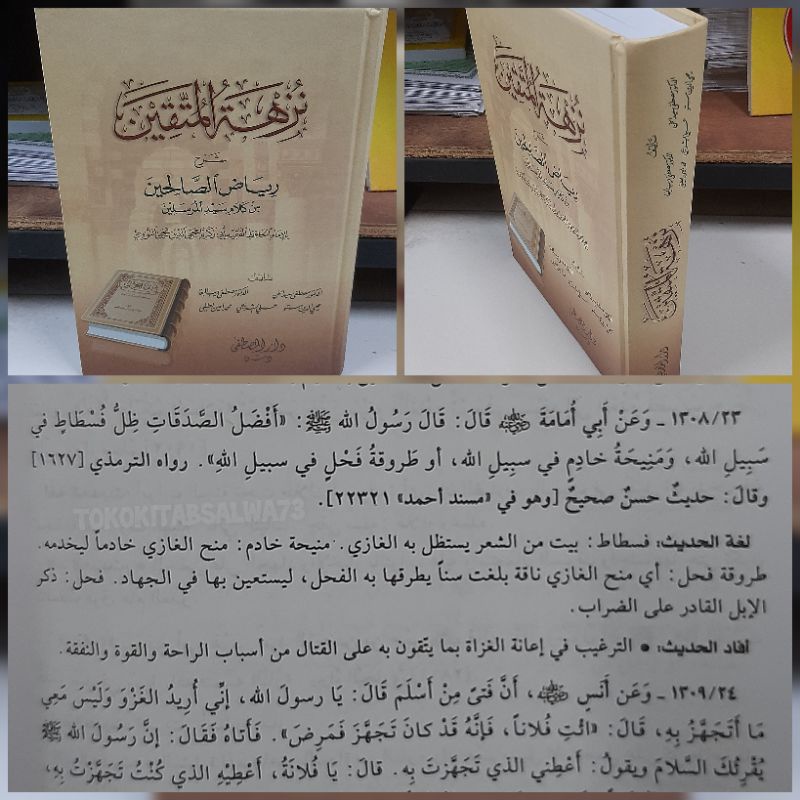 نُزهَةُ المُتَّقِينَ
شَرْح
رِيَاضِ الصَّالِحِينَ
مِنْ كَلَامِ سَيِّدِ المُرْسَلِينَ
تأليف
الدكتور مصطفى سعيد الخن
الدكتور مصطفى البغا
محيي الدين مستو
علي الشربجي
محمد أمين لطفي
دار المصطفى
نزهة المتقين
١٣٠٨/٢٣ ـ وَعَنْ أَبِي أُمَامَةَ رضي الله عنه قَالَ: قَالَ رَسُولُ الله ﷺ: «أَفْضَلُ الصَّدَقَاتِ ظِلُّ فُسْطَاطٍ في
سَبِيلِ الله، وَمَنِيحَةُ خادِمٍ في سبِيلِ الله، أو طَروقةُ فَحْلٍ في سبيلِ اللهِ». رواه الترمذي [١٦٢٧]
وقالَ: حديثٌ حسنٌ صحيحٌ [وهو في «مسند أحمد» ٢٢٣٢١].
TOKOKITABSALWA73
لغة الحديث: فسطاط: بيت من الشعر يستظل به الغازي. منيحة خادم: منح الغازي خادماً ليخدمه.
طروقة فحل: أي منح الغازي ناقة بلغت سناً يطرقها به الفحل، ليستعين بها في الجهاد. فحل: ذكر
الإبل القادر على الضراب.
أفاد الحديث: • الترغيب في إعانة الغزاة بما يتّقون به على القتال من أسباب الراحة والقوة والنفقة.
١٣٠٩/٢٤ ـ وَعَن أَنَسٍ رضي الله عنه، أَنَّ فَتىً مِنْ أَسْلَمَ قَالَ: يَا رسولَ الله، إنِّي أُرِيدُ الغَزْوَ وَلَيْسَ مَعِي
مَا أَتَجَهَّزُ بِهِ، قَالَ: «ائْتِ فُلاناً، فَإِنَّهُ قَدْ كانَ تَجَهَّزَ فَمَرِضَ». فَأَتاهُ فَقَالَ: إنَّ رَسُولَ الله ﷺ
يُقْرِئُكَ السَّلامَ ويقولُ: أَعْطِني الذي تَجَهَّزتَ بِهِ. قالَ: يَا فُلانَةُ، أَعْطِيْهِ الذي كُنْتُ تَجَهَّزْتُ بِهِ،